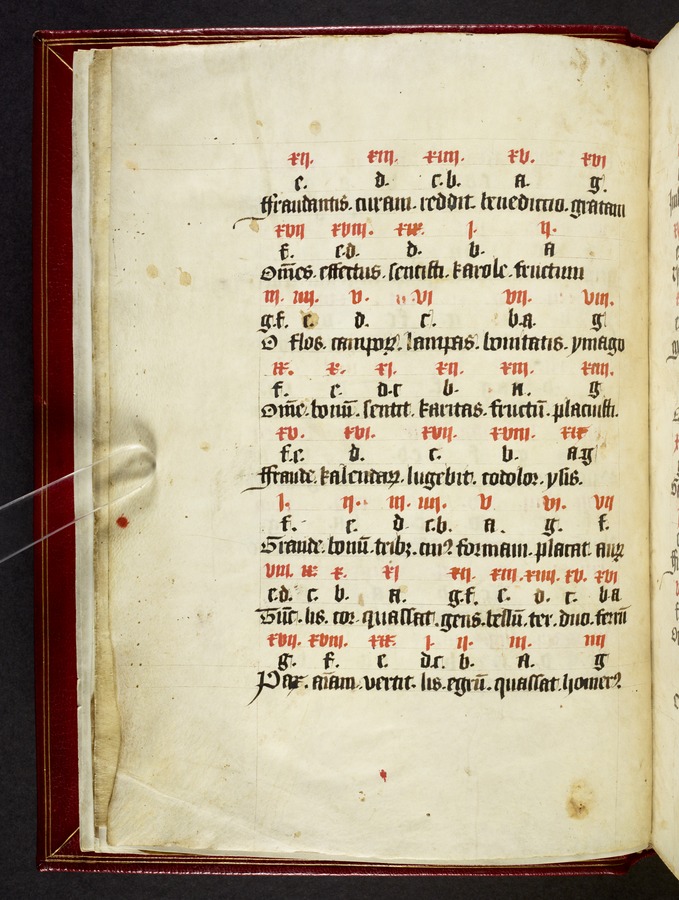 xij. xiij. xiiij. xv. xvi
e. d. c.b. a. g.
ffraudantis. curam. reddit. benedictio. gratam
xvij xviij. xix. j. ij.
f. e.d. d. b. a
Om̄es. effectus. sentisti. karole. fructum
iij. iiij. v. vi vij. viij.
g.f. e. d. c. b.a. g
O flos. campoꝝ. lampas. bonitatis. ymago
ix. x. xi. xij. xiij. xiiij.
f. e. d.c b. a. g
Om̄e. bonū. sentit. karitas. fructū. placuisti.
xv. xvi. xvij. xviij. xix
f.e. d. c. b. a.g
ffraude. kalendaꝝ. lugebit. codolor. ysis.
j. ij. iij. iiij. v vi. vij
f. e. d c.b. a. g. f.
Graude. bonū. tribꝫ. formam. placat.
viij. ix x. xi xij. xiij. xiiij. xv. xvi
e.d. c. b. a. g.f. e. d. c. b.a
lis. cor. quassat. gens. bellū. ter. duo. ferrū
xvij. xviij. xix. j. ij. iij. iiij
g. f. e. d.c. b. a. g
Pax. aīam. vertit. lis. egrū. quassat.